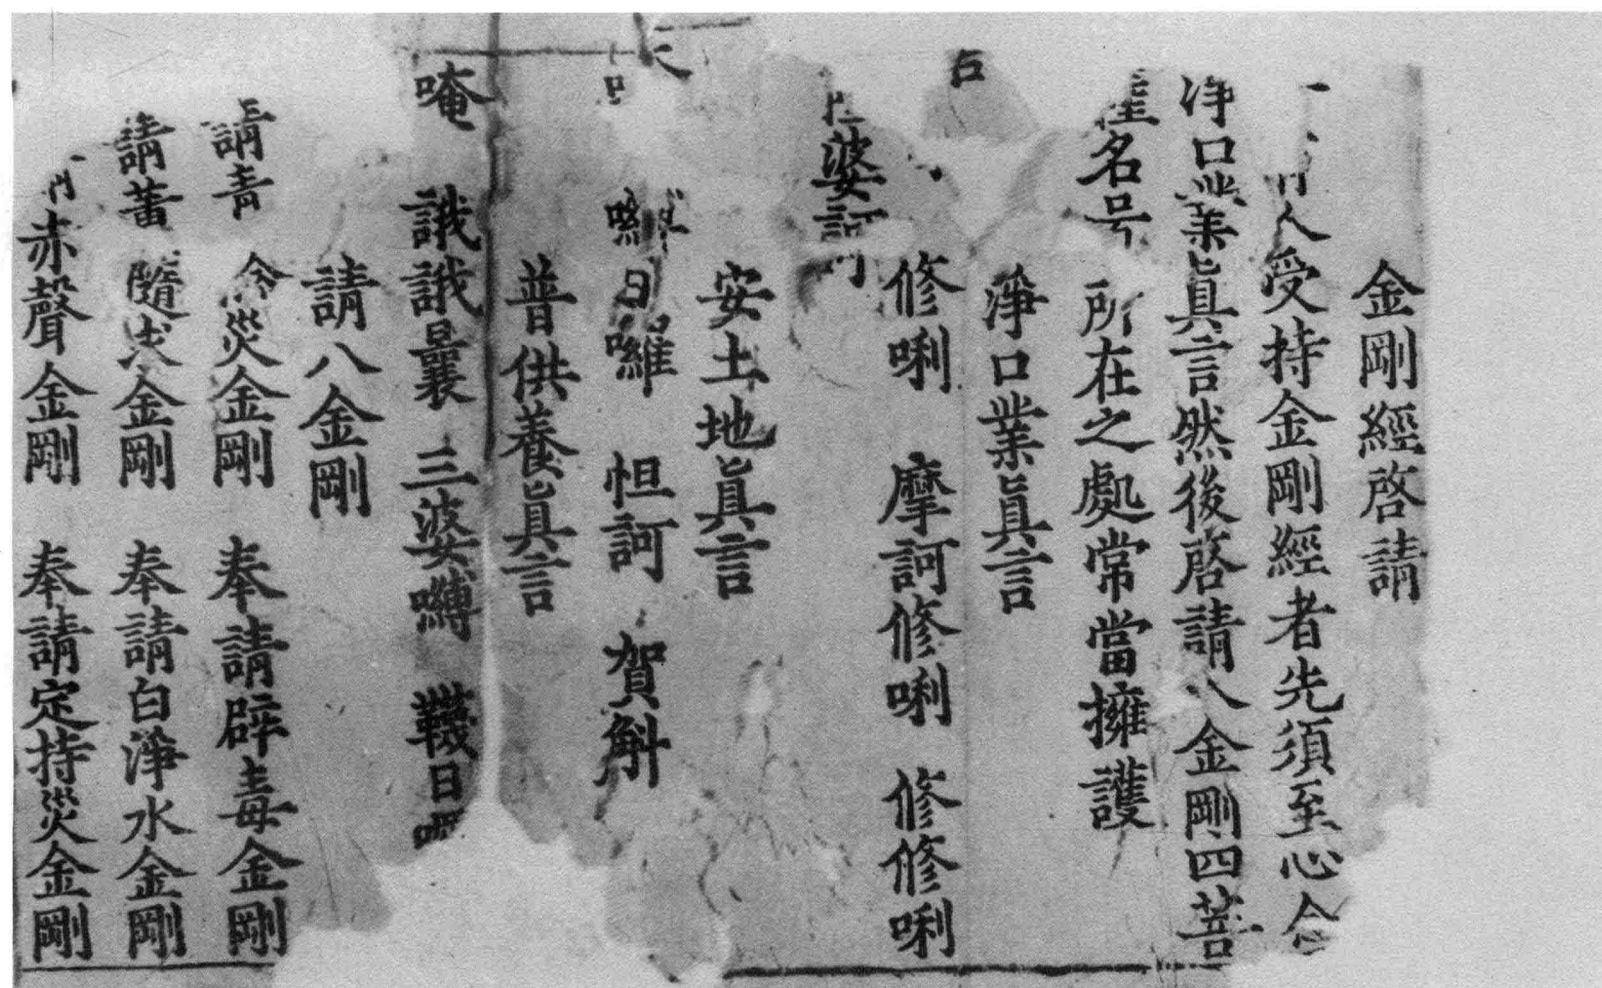 金剛經啓請
人受持金剛經者先須至心念
淨口業眞言然後啓請八金剛四菩
薩名号所在之處常當擁護
淨口業眞言
修唎 摩訶修唎 修修唎
婆訶
安土地眞言
日囉 怛訶 賀斛
普供養眞言
唵 誐誐曩 三婆嚩 韈日
請八金剛
請青 災金剛 奉請辟毒金剛
請黃隨求金剛 奉請白淨水金剛
請赤聲金剛 奉請定持災金剛